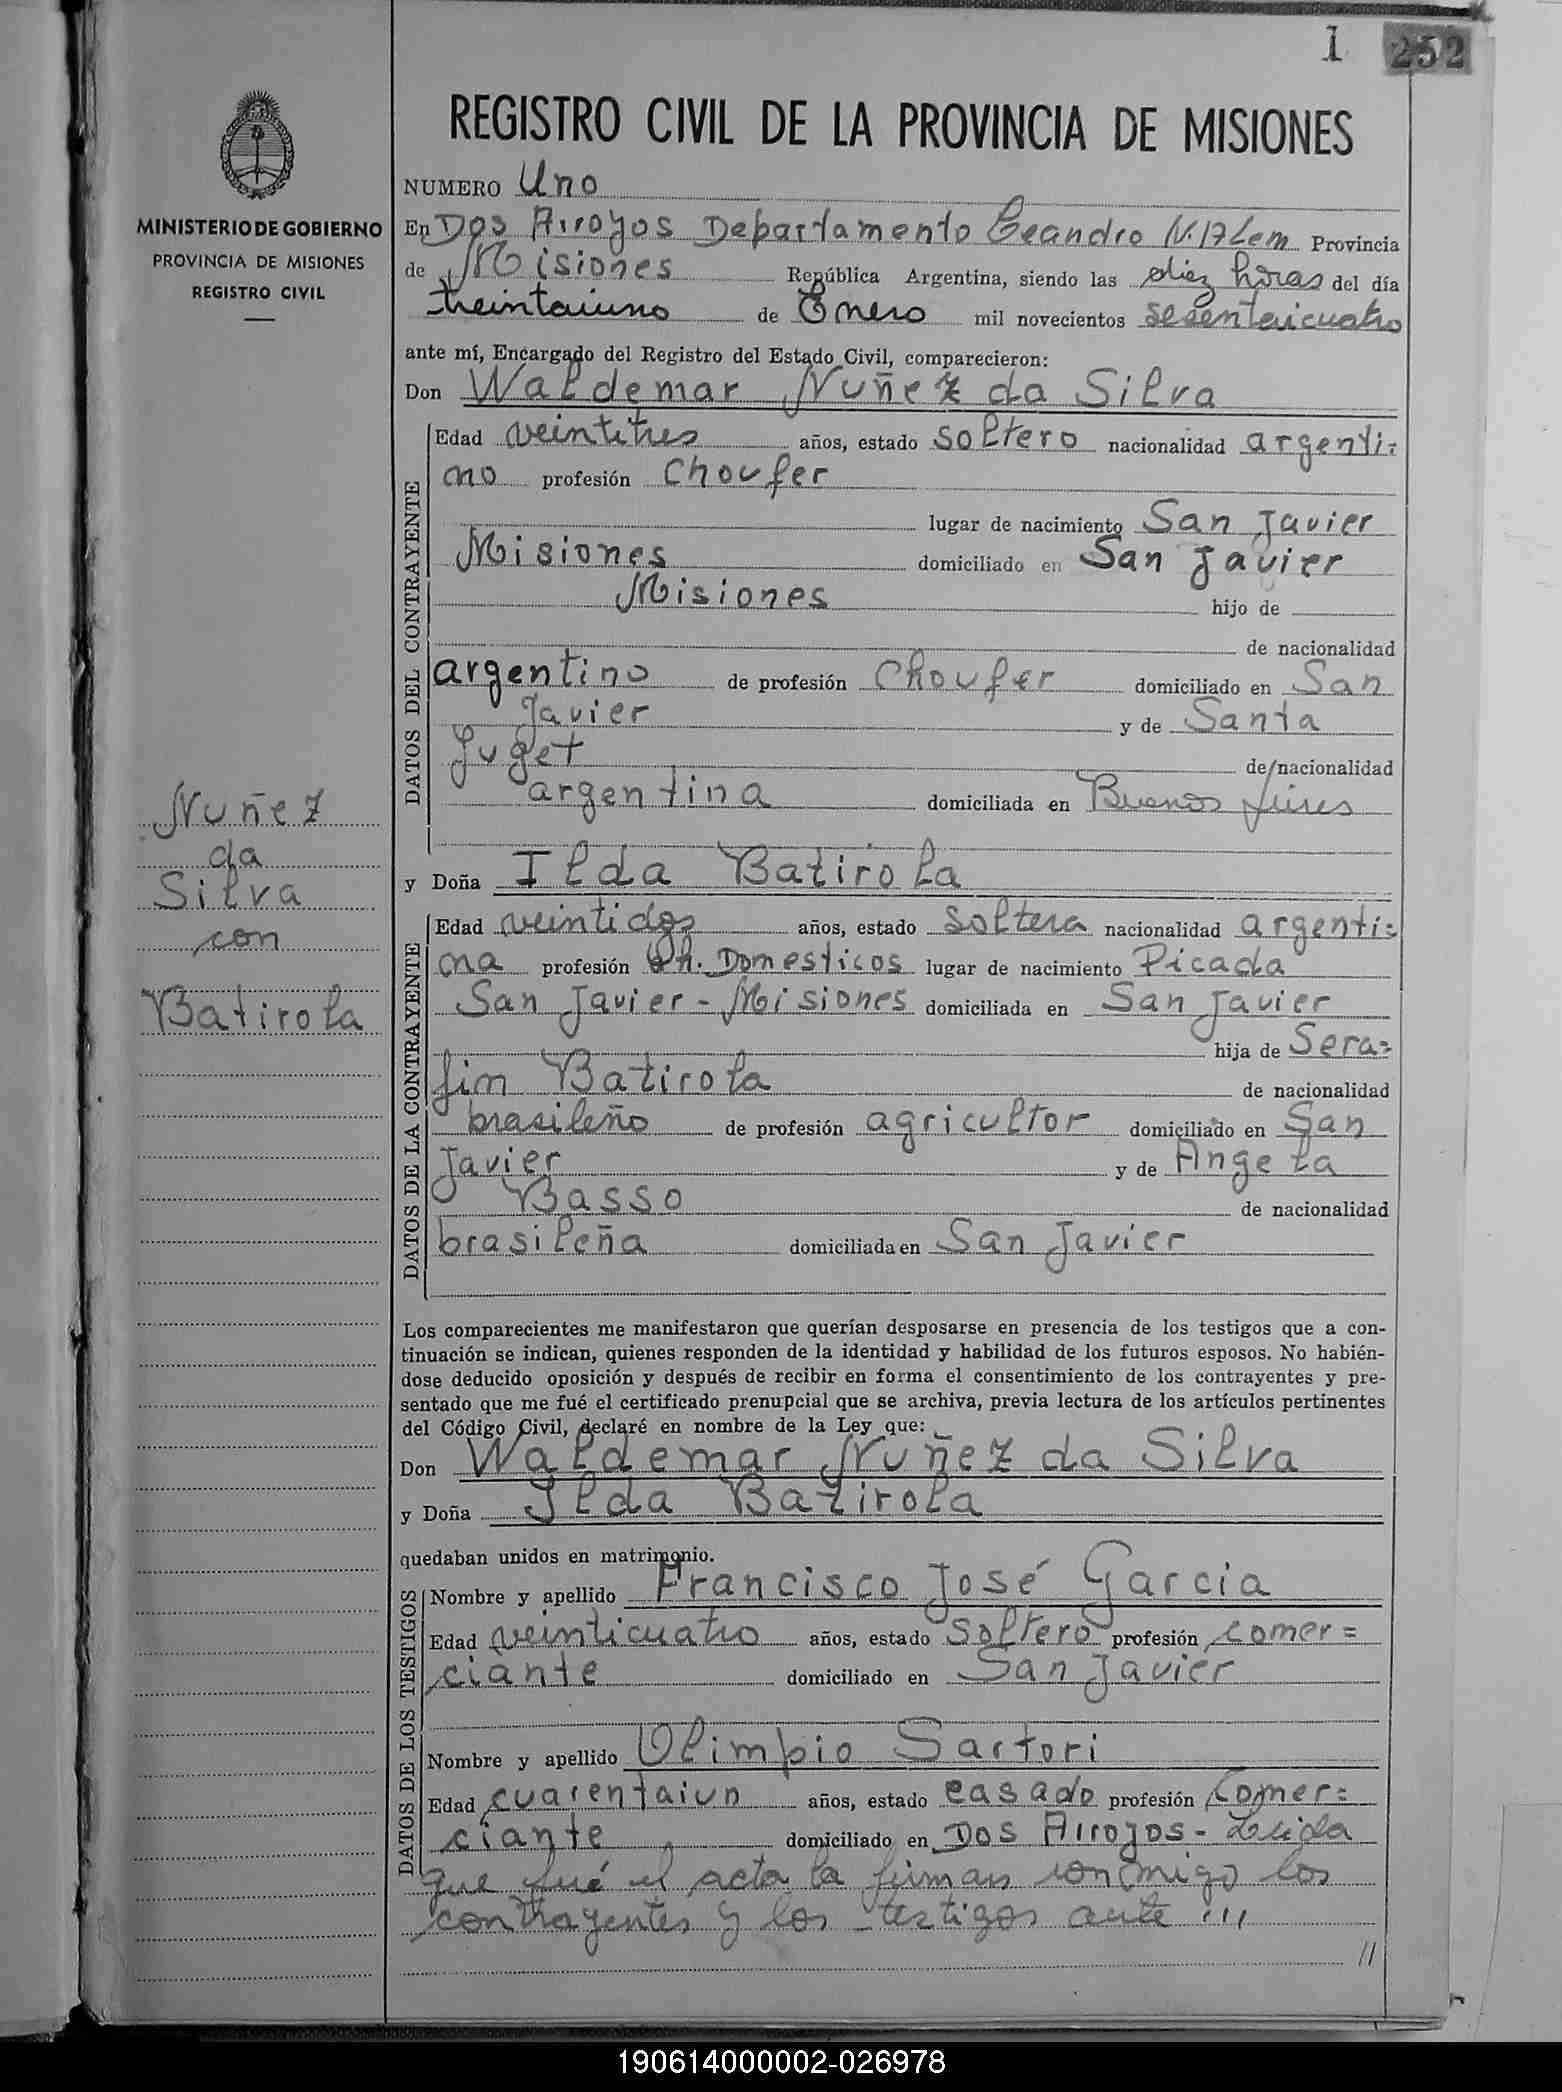 1 252
REGISTRO CIVIL DE LA PROVINCIA DE MISIONES
MINISTERIO DE GOBIERNO
PROVINCIA DE MISIONES
REGISTRO CIVIL
Nuñez
da
Silva
con
Batirola
NUMERO Uno
En Dos Arroyos Departamento Leandro N. Alem Provincia
de Misiones República Argentina, siendo las diez horas del día
treintaiuno de Enero mil novecientos sesentaicuatro
ante mí, Encargado del Registro del Estado Civil, comparecieron:
Don Waldemar Nuñez da Silva
DATOS DEL CONTRAYENTE
Edad veintitres años, estado soltero nacionalidad argenti=
no profesión Choufer
lugar de nacimiento San Javier
Misiones domiciliado en San Javier
Misiones hijo de
de nacionalidad
argentino de profesión Choufer domiciliado en San
Javier y de Santa
Juget de nacionalidad
argentina domiciliada en Buenos Aires
y Doña Ilda Batirola
DATOS DE LA CONTRAYENTE
Edad veintidos años, estado soltera nacionalidad argenti=
na profesión Qh. Domesticos lugar de nacimiento Picada
San Javier - Misiones domiciliada en San Javier
hija de Sera=
fin Batirola de nacionalidad
brasileño de profesión agricultor domiciliado en San
Javier y de Angela
Basso de nacionalidad
brasileña domiciliada en San Javier
Los comparecientes me manifestaron que querían desposarse en presencia de los testigos que a con-
tinuación se indican, quienes responden de la identidad y habilidad de los futuros esposos. No habién-
dose deducido oposición y después de recibir en forma el consentimiento de los contrayentes y pre-
sentado que me fué el certificado prenupcial que se archiva, previa lectura de los artículos pertinentes
del Código Civil, declaré en nombre de la Ley que:
Don Waldemar Nuñez da Silva
y Doña Ilda Batirola
quedaban unidos en matrimonio.
DATOS DE LOS TESTIGOS
Nombre y apellido Francisco José Garcia
Edad veinticuatro años, estado soltero profesión comer=
ciante domiciliado en San Javier
Nombre y apellido Olimpio Sartori
Edad cuarentaiun años, estado casado profesión Comer=
ciante domiciliado en Dos Arroyos - Leida
que fué el acta la firman conmigo los
contrayentes y los testigos ante ///
//
190614000002-026978